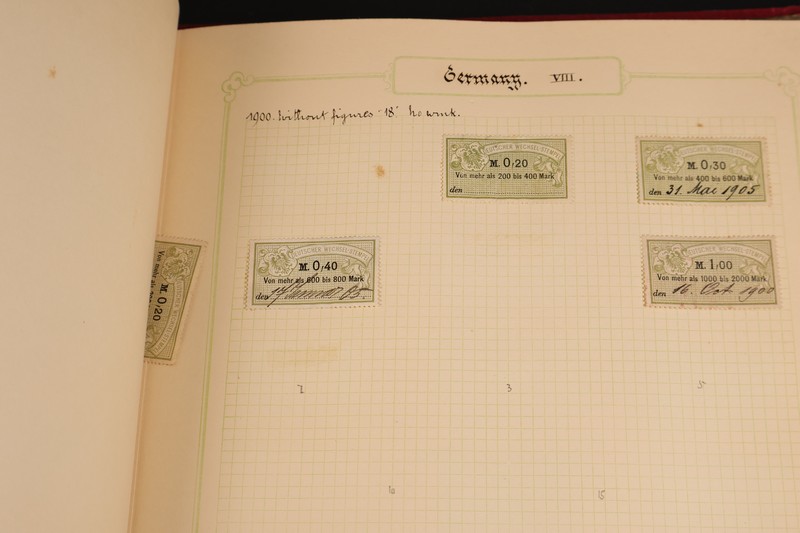 Germany. VIII.
1900. Without figures '18' No wmk.
DEUTSCHER WECHSEL-STEMPEL
M. 0,20
Von mehr als 200 bis 400 Mark
den
DEUTSCHER WECHSEL-STEMPEL
M. 0,30
Von mehr als 400 bis 600 Mark
den 31. Mai 1905
DEUTSCHER WECHSEL-STEMPEL
M. 0,40
Von mehr als 600 bis 800 Mark
den 17 Januar 05.
DEUTSCHER WECHSEL-STEMPEL
M. 1,00
Von mehr als 1000 bis 2000 Mark
den 16. Oct 1900
Von mehr als
M. 0,20
2
3
5
10
15